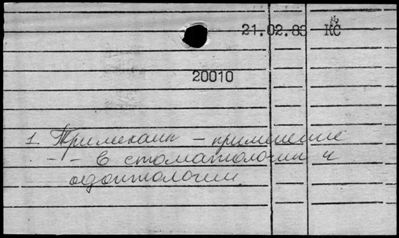 21.02.83 КС
20010
1. Тримекаин – применение
– " – в стоматологии и
одонтологии